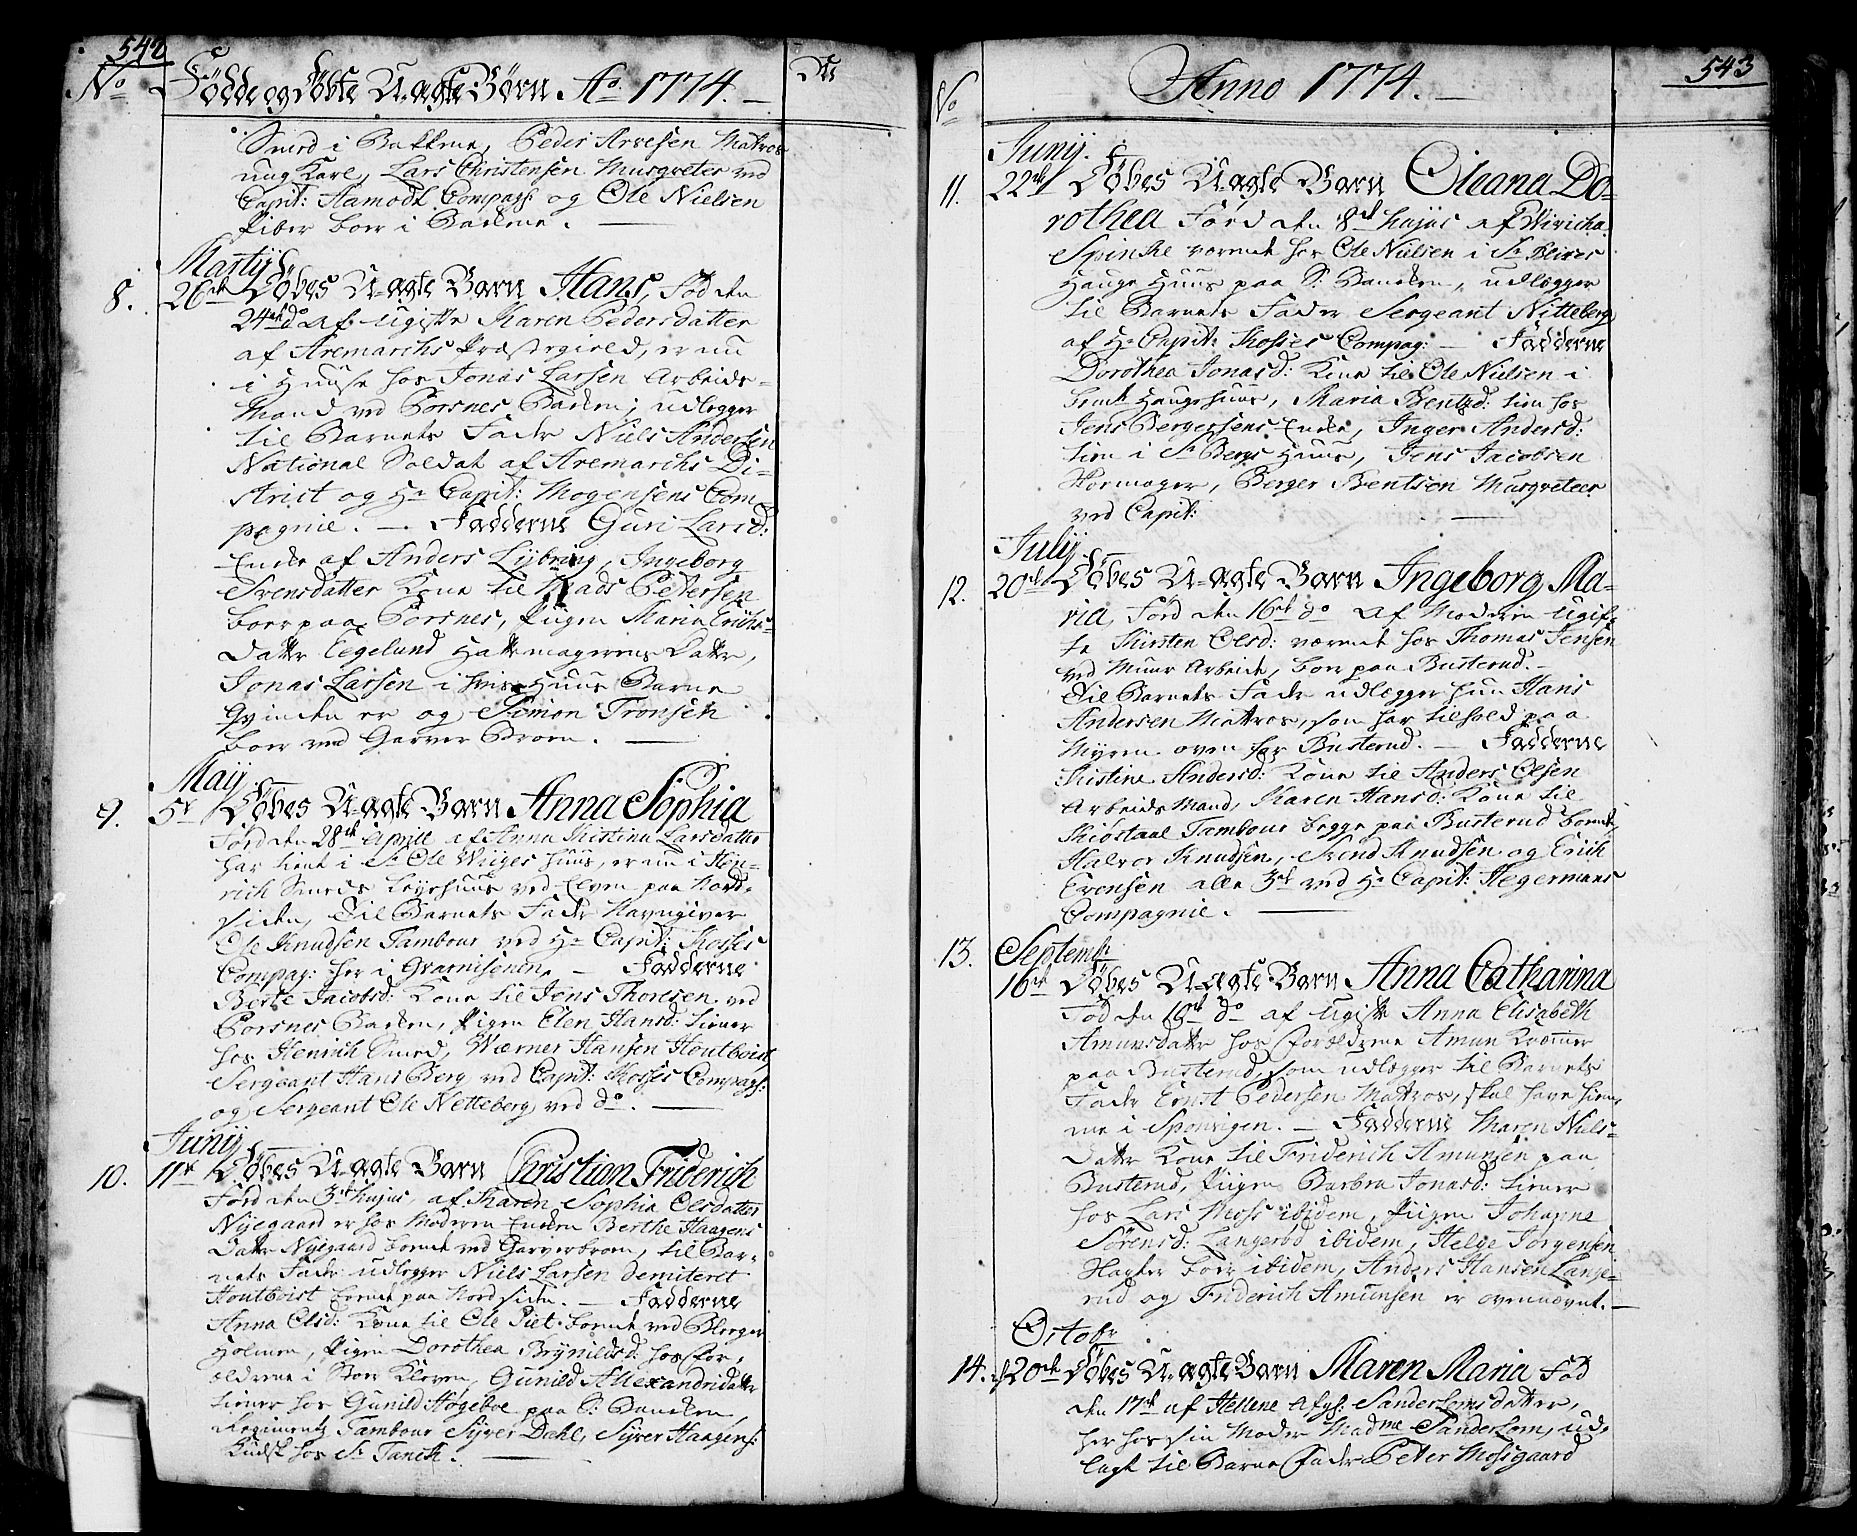 542
No Fødde og Døbte U-ægte Børn Ao 1774.
Smed i Bakkene, Peder Arvesen Matros
ung Karl, Lars Christensen Musqveter ved
Capit: Aamodt Compags: og Ole Nielsen
Piber boer i Backene.
Martij
8. 26de Døbes U-ægte Barn Hans, Fød den
24de do af ugifte Karen Pedersdatter
af Aremarchs Præstegield, er nu
i Huuse hos Jonas Larsen Arbeids-
Mand ved Porsnes Backen; udlegger
til Barnets Fader Niels Andersen
National Soldat af Aremarchs Di-
strict og Hr Capit: Mogensens Com-
pagnie. — Fadderne Guri Larsd:
Encke af Anders Lybring, Ingeborg
Svensdatter Kone til Mads Petersen
boer paa Porsnes, Pigen Maria Erichs-
datter Egelund Hattemagerens Datter,
Jonas Larsen i hvis Huus Barne
Qvinden er og Simon Tronsen
boer ved Garver Broen.
May
9. 5te Døbes U-ægte Barn Anna Sophia
Fød den 28de Aprill af Anna Kistina Larsdatter
har tient i Sr Ole Wiiges Huus, er nu i Hen-
rich Smeds Leyehuus ved Elven paa Nord-
siden, Til Barnets Fader Navngiver
Ole Knudsen Tambour ved Hr Capit: Kosses
Compag: her i Guarnisonen. — Fadderne
Berte Jacobsd: Kone til Jens Thoresen ved
Porsnes Backen, Pigen Elen Hansd: tiener
hos Henrich Smed, Wærner Hansen Houtboist,
Sergeant Hans Berg ved Capit: Kosses Compags:
og Sergeant Ole Netteberg ved do.
Junij
10. 11te Døbes U-ægte Barn Christian Friderich
Fød den 3de hujus af Karen Sophia Olsdatter
Nyegaard er hos Moderen Encken Berthe Haagens
Datter Nyegaard boende ved Garverbroen, til Bar-
nets Fader udlegger Niels Larsen demiteret
Houtboist boende paa Nordsiden. — Fadderne
Anna Olsd: Kone til Ole Piet boende ved
Holmen, Pigen Dorothea Brynildsd: hos For-
ældrene i Store Kleven, Gunild Allexandersdatter
tiener hos Gunild Høgeboe paa S: Bancken,
Regiments Tambour Syver Dahl, Syver Haagens:
Kudsk hos Sr Tanck.
543
No Anno 1774.
Junij.
11. 22de Døbes U-ægte Barn Oleana Do-
rothea Fød den 8de hujus af Wiricha
Spinke værende hos Ole Nielsen i Sr
Hauge Huus paa S: Bancken, udlægger
til Barnets Fader Sergeant Nitteberg
af Hr Capit: Kosses Compag: — Fadderne
Dorothea Jonasd: Kone til Ole Nielsen i
Hauge huus, Maria Bentsd: tien hos
Jens Bergersens Encke, Inger Andersd:
tien i Sr Bergs Huus, Jens Jacobsen
Skoemager, Berger Bentsen Musqveteer
ved Capit:
Julij
12. 20de Døbes U-ægte Barn Ingeborg Ma-
ria, Fød den 16de do af Moderen ugif-
te Kirsten Olsd: værende hos Thomas Jensen
ved Muur Arbeide, boer paa Busterud. —
Til Barnets Fader udlægger hun Hans
Andersen Mattros, som har tilhold paa
Myren oven for Busterud. — Fadderne
Kistine Andersd: Kone til Anders Olsen
Arbeids Mand, Karen Hansd: Kone til
Kiøstaal Tambour begge paa Busterud boende,
Halvor Knudsen, Svend Knudsen og Erich
Evensen alle 3de ved Hr Capit: Hegermans
Compagnie.
13. Septembr
16de Døbes U-ægte Barn Anna Catharina
Fød den 10de do af ugifte Anna Elisabeth
Amunsdatter hos Forældrene Amun Kræmmer
paa Busterud, som udlægger til Barnets
Fader Ernst Pedersen Mattros, skal have hiem-
me i Sponvigen. — Fadderne Maren Niels-
datter Kone til Friderich Amunsen paa
Busterud, Pigen Barbra Jonasd: tiener
hos Lars Moss ibidem, Pigen Johanne
Sørensd: Langerød ibidem, Helge Jørgensen
Hagter boer ibidem, Anders Hansen Lange-
rud og Friderich Amunsen er ovennævnt. —
Octobr
14. 20de Døbes U-ægte Barn Maren Maria Fød
den 17de af Hellene Afgl: Sanderloms datter,
her hos sin Moder Madme Sanderlom, ud-
lagt til Barne Fader Peter Mossgaard